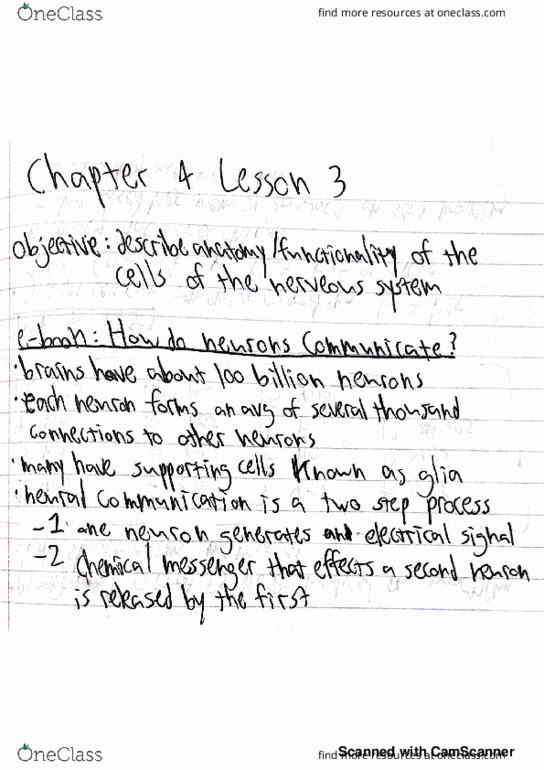 OneClass
find more resources at oneclass.com
Chapter 4 Lesson 3
objective: describe anatomy/functionality of the
cells of the nerveous system
e-book: How do neurons Communicate?
• brains have about 100 billion neurons
• each neuron forms an avg of several thousand
connections to other neurons
• many have supporting cells known as glia
• neural communication is a two step process
-1 one neuron generates electrical signal
-2 Chemical messenger that effects a second neuron
is released by the first
OneClass
find more resources at oneclass.com
Scanned with CamScanner